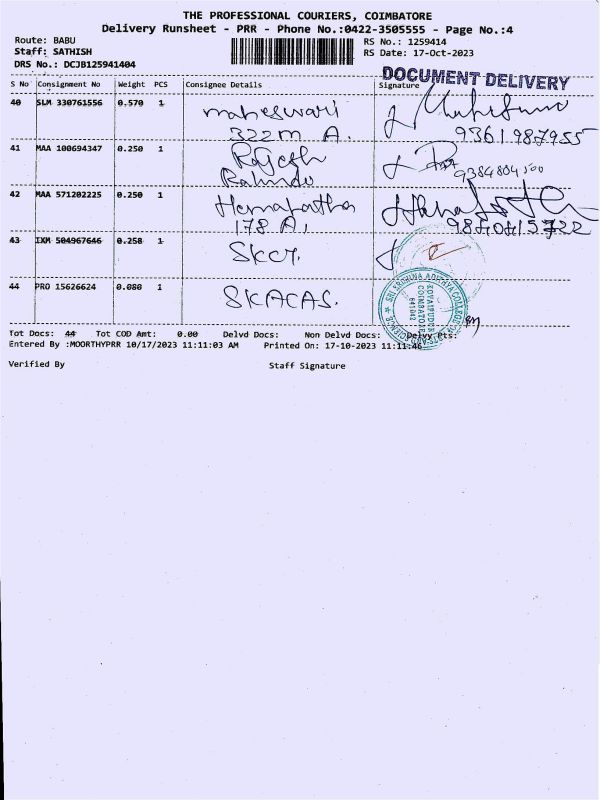 THE PROFESSIONAL COURIERS, COIMBATORE
Delivery Runsheet - PRR - Phone No.:0422-3505555 - Page No.:4
Route: BABU RS No.: 1259414
Staff: SATHISH RS Date: 17-Oct-2023
DRS No.: DCJB125941404
DOCUMENT DELIVERY
S No Consignment No Weight PCS Consignee Details Signature
40 SLM 330761556 0.570 1 maheswari
322 M A. 9361987955
41 MAA 100694347 0.250 1 Rajesh
9384804500
42 MAA 571202225 0.250 1
178 A, 9840415722
43 IXM 504967646 0.258 1 SKCT.
44 PRO 15626624 0.080 1 SKACAS.
SRI KRISHNA ADITHYA COLLEGE OF ARTS AND SCIENCE
KOVAIPUDUR
COIMBATORE
641042
Tot Docs: 44 Tot COD Amt: 0.00 Delvd Docs: Non Delvd Docs: Delvy Pts:
Entered By :MOORTHYPRR 10/17/2023 11:11:03 AM Printed On: 17-10-2023 11:11:46
Verified By Staff Signature